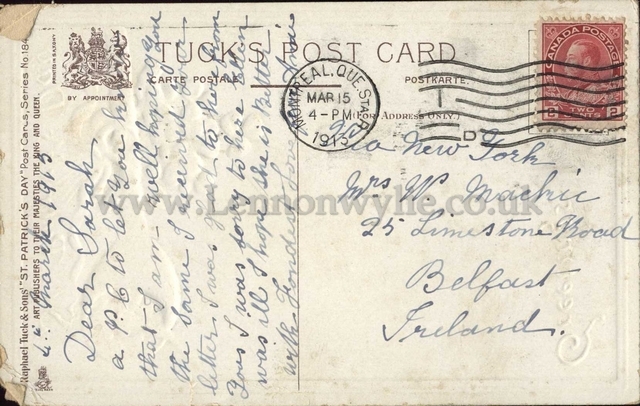 TUCK'S POST CARD
CARTE POSTALE
POSTKARTE.
(For Address Only.)
BY APPOINTMENT
PRINTED IN SAXONY
Raphael Tuck & Sons' "ST. PATRICK'S DAY" Post Cards, Series No. 184
ART PUBLISHERS TO THEIR MAJESTIES THE KING AND QUEEN.
MONTREAL, QUE. Sta. B
MAR 15
4-PM
1913
CANADA POSTAGE
TWO CENTS
2 2
March 1913
Dear Sarah
a P.C to let you know
that I am well hoping you
the same I received your
letter I was glad to hear from
you I was sorry to hear Ellen
was ill I hope she is better
with Fondest Love
Via New York
Mrs W. Mackie
25 Limestone Road
Belfast
Ireland.
www.Lennonwylie.co.uk